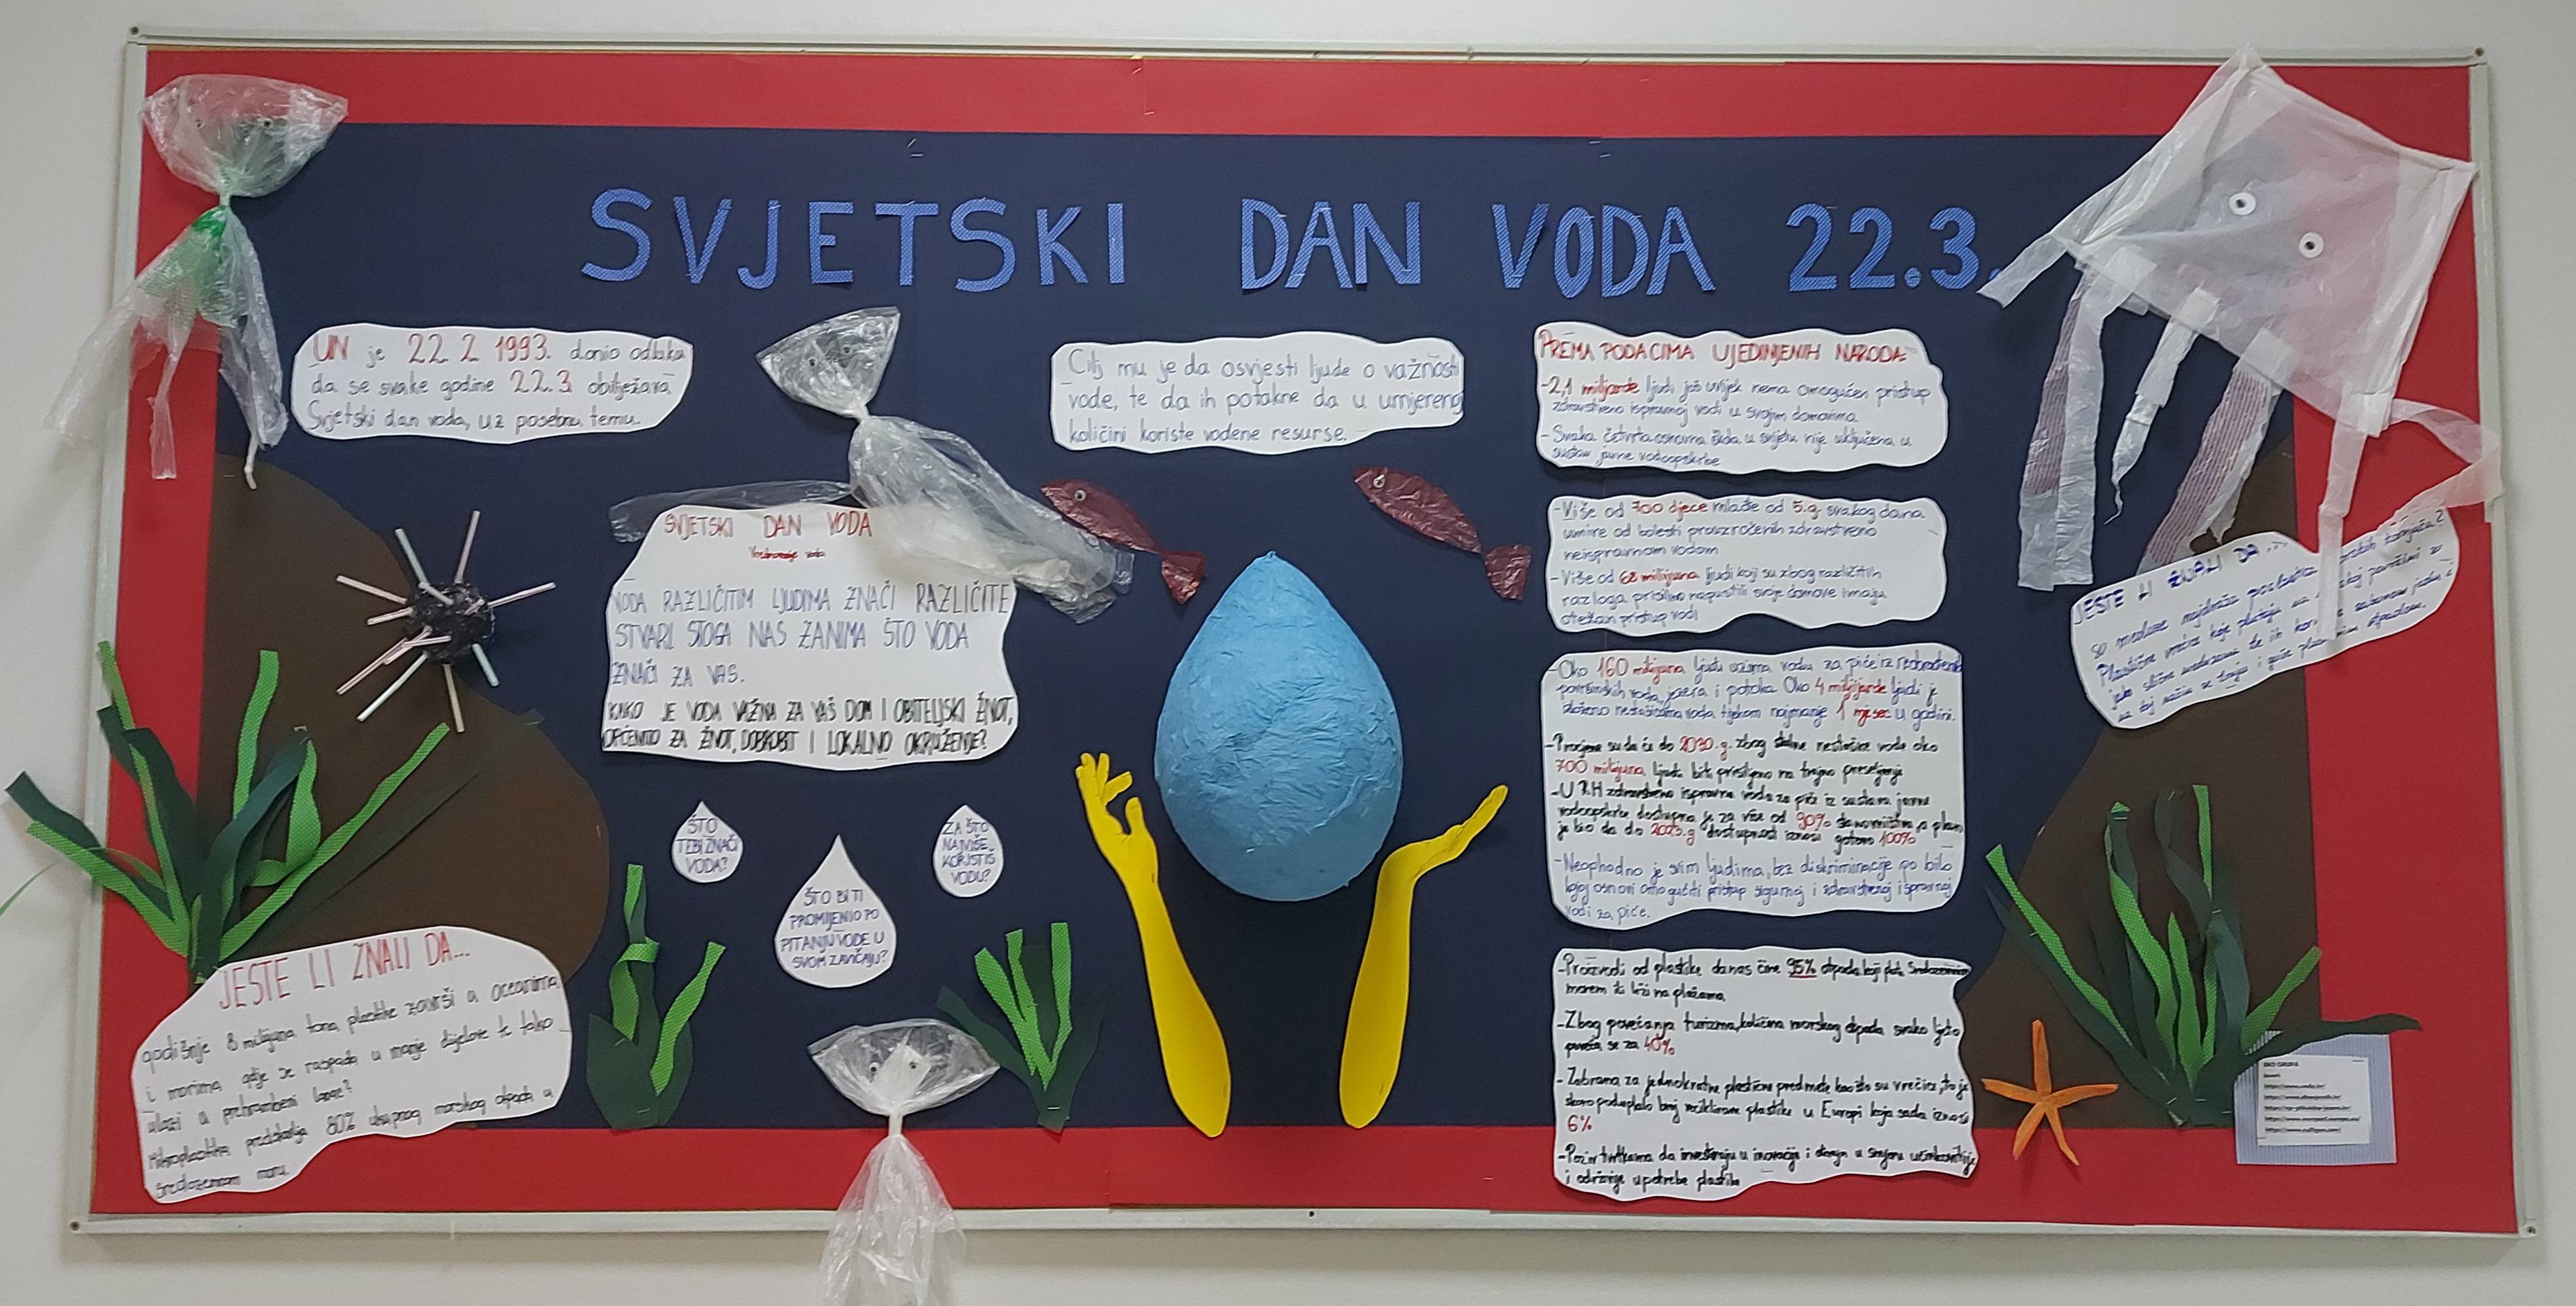 SVJETSKI DAN VODA 22.3.
UN je 22. 2. 1993. donio odluku
da se svake godine 22.3. obilježava
Svjetski dan voda, uz posebnu temu.
Cilj mu je da osvjesti ljude o važnosti
vode, te da ih potakne da u umjerenoj
količini koriste vodene resurse.
SVJETSKI DAN VODA
Vrednovanje voda
VODA RAZLIČITIM LJUDIMA ZNAČI RAZLIČITE
STVARI STOGA NAS ZANIMA ŠTO VODA
ZNAČI ZA VAS.
KAKO JE VODA VAŽNA ZA VAŠ DOM I OBITELJSKI ŽIVOT,
OPĆENITO ZA ŽIVOT, DOBROBIT I LOKALNO OKRUŽENJE?
ŠTO
TEBI ZNAČI
VODA?
ŠTO BI TI
PROMIJENIO PO
PITANJU VODE U
SVOM ZAVIČAJU?
ZA ŠTO
NAJVIŠE
KORISTIŠ
VODU?
JESTE LI ZNALI DA...
godišnje 8 milijuna tona plastike završi u oceanima
i morima gdje se raspada u manje dijelove te tako
ulazi u prehrambeni lanac?
Mikroplastika predstavlja 80% ukupnog morskog otpada u
Sredozemnom moru.
PREMA PODACIMA UJEDINJENIH NARODA:
-2,1 milijarde ljudi još uvijek nema omogućen pristup
zdravstveno ispravnoj vodi u svojim domovima
- Svaka četvrta osnovna škola u svijetu nije uključena u
sustav javne vodoopskrbe
-Više od 700 djece mlađe od 5.g. svakog dana
umire od bolesti prouzročenih zdravstveno
neispravnom vodom
-Više od 68 milijuna ljudi koji su zbog različitih
razloga prisilno napustili svoje domove imaju
otežan pristup vodi
-Oko 160 milijuna ljudi uzima vodu za piće iz
površinskih voda, jezera i potoka. Oko 4 milijarde ljudi je
izloženo nestašicama voda tijekom najmanje 1 mjesec u godini.
-Procjene su da će do 2030.g. zbog stalne nestašice vode oko
700 milijuna ljudi biti prisiljeno na trajno preseljenje
-U RH zdravstveno ispravna voda za piće iz sustava javne
vodoopskrbe dostupna je za više od 90% stanovništva, a plan
je bio da do 2023.g dostupnost iznosi gotovo 100%
-Neophodno je svim ljudima, bez diskriminacije po bilo
kojoj osnovi omogućiti pristup sigurnoj i zdravstvenoj ispravnoj
vodi za piće.
-Proizvodi od plastike danas čine 95% otpada koji pluta Sredozemnim
morem ili leži na plažama
-Zbog povećanja turizma, količina morskog otpada svako ljeto
poveća se za 40%
-Zabrana za jednokratne plastične predmete kao što su vrećice, to je
skoro poduplalo broj reciklirane plastike u Europi koja sada iznosi
6%
-Poziv tvrtkama da investiraju u inovacije i dizajn u smjeru učinkovitije
i održivije upotrebe plastike
JESTE LI ZNALI DA ...
su meduze najdraža poslastica morskih kornjača?
Plastične vrećice koje plutaju na morskoj površini su
jako slične meduzama te ih kornjače zabunom jedu i
na taj način se truju i guše plastičnim otpadom.
EKO GRUPA